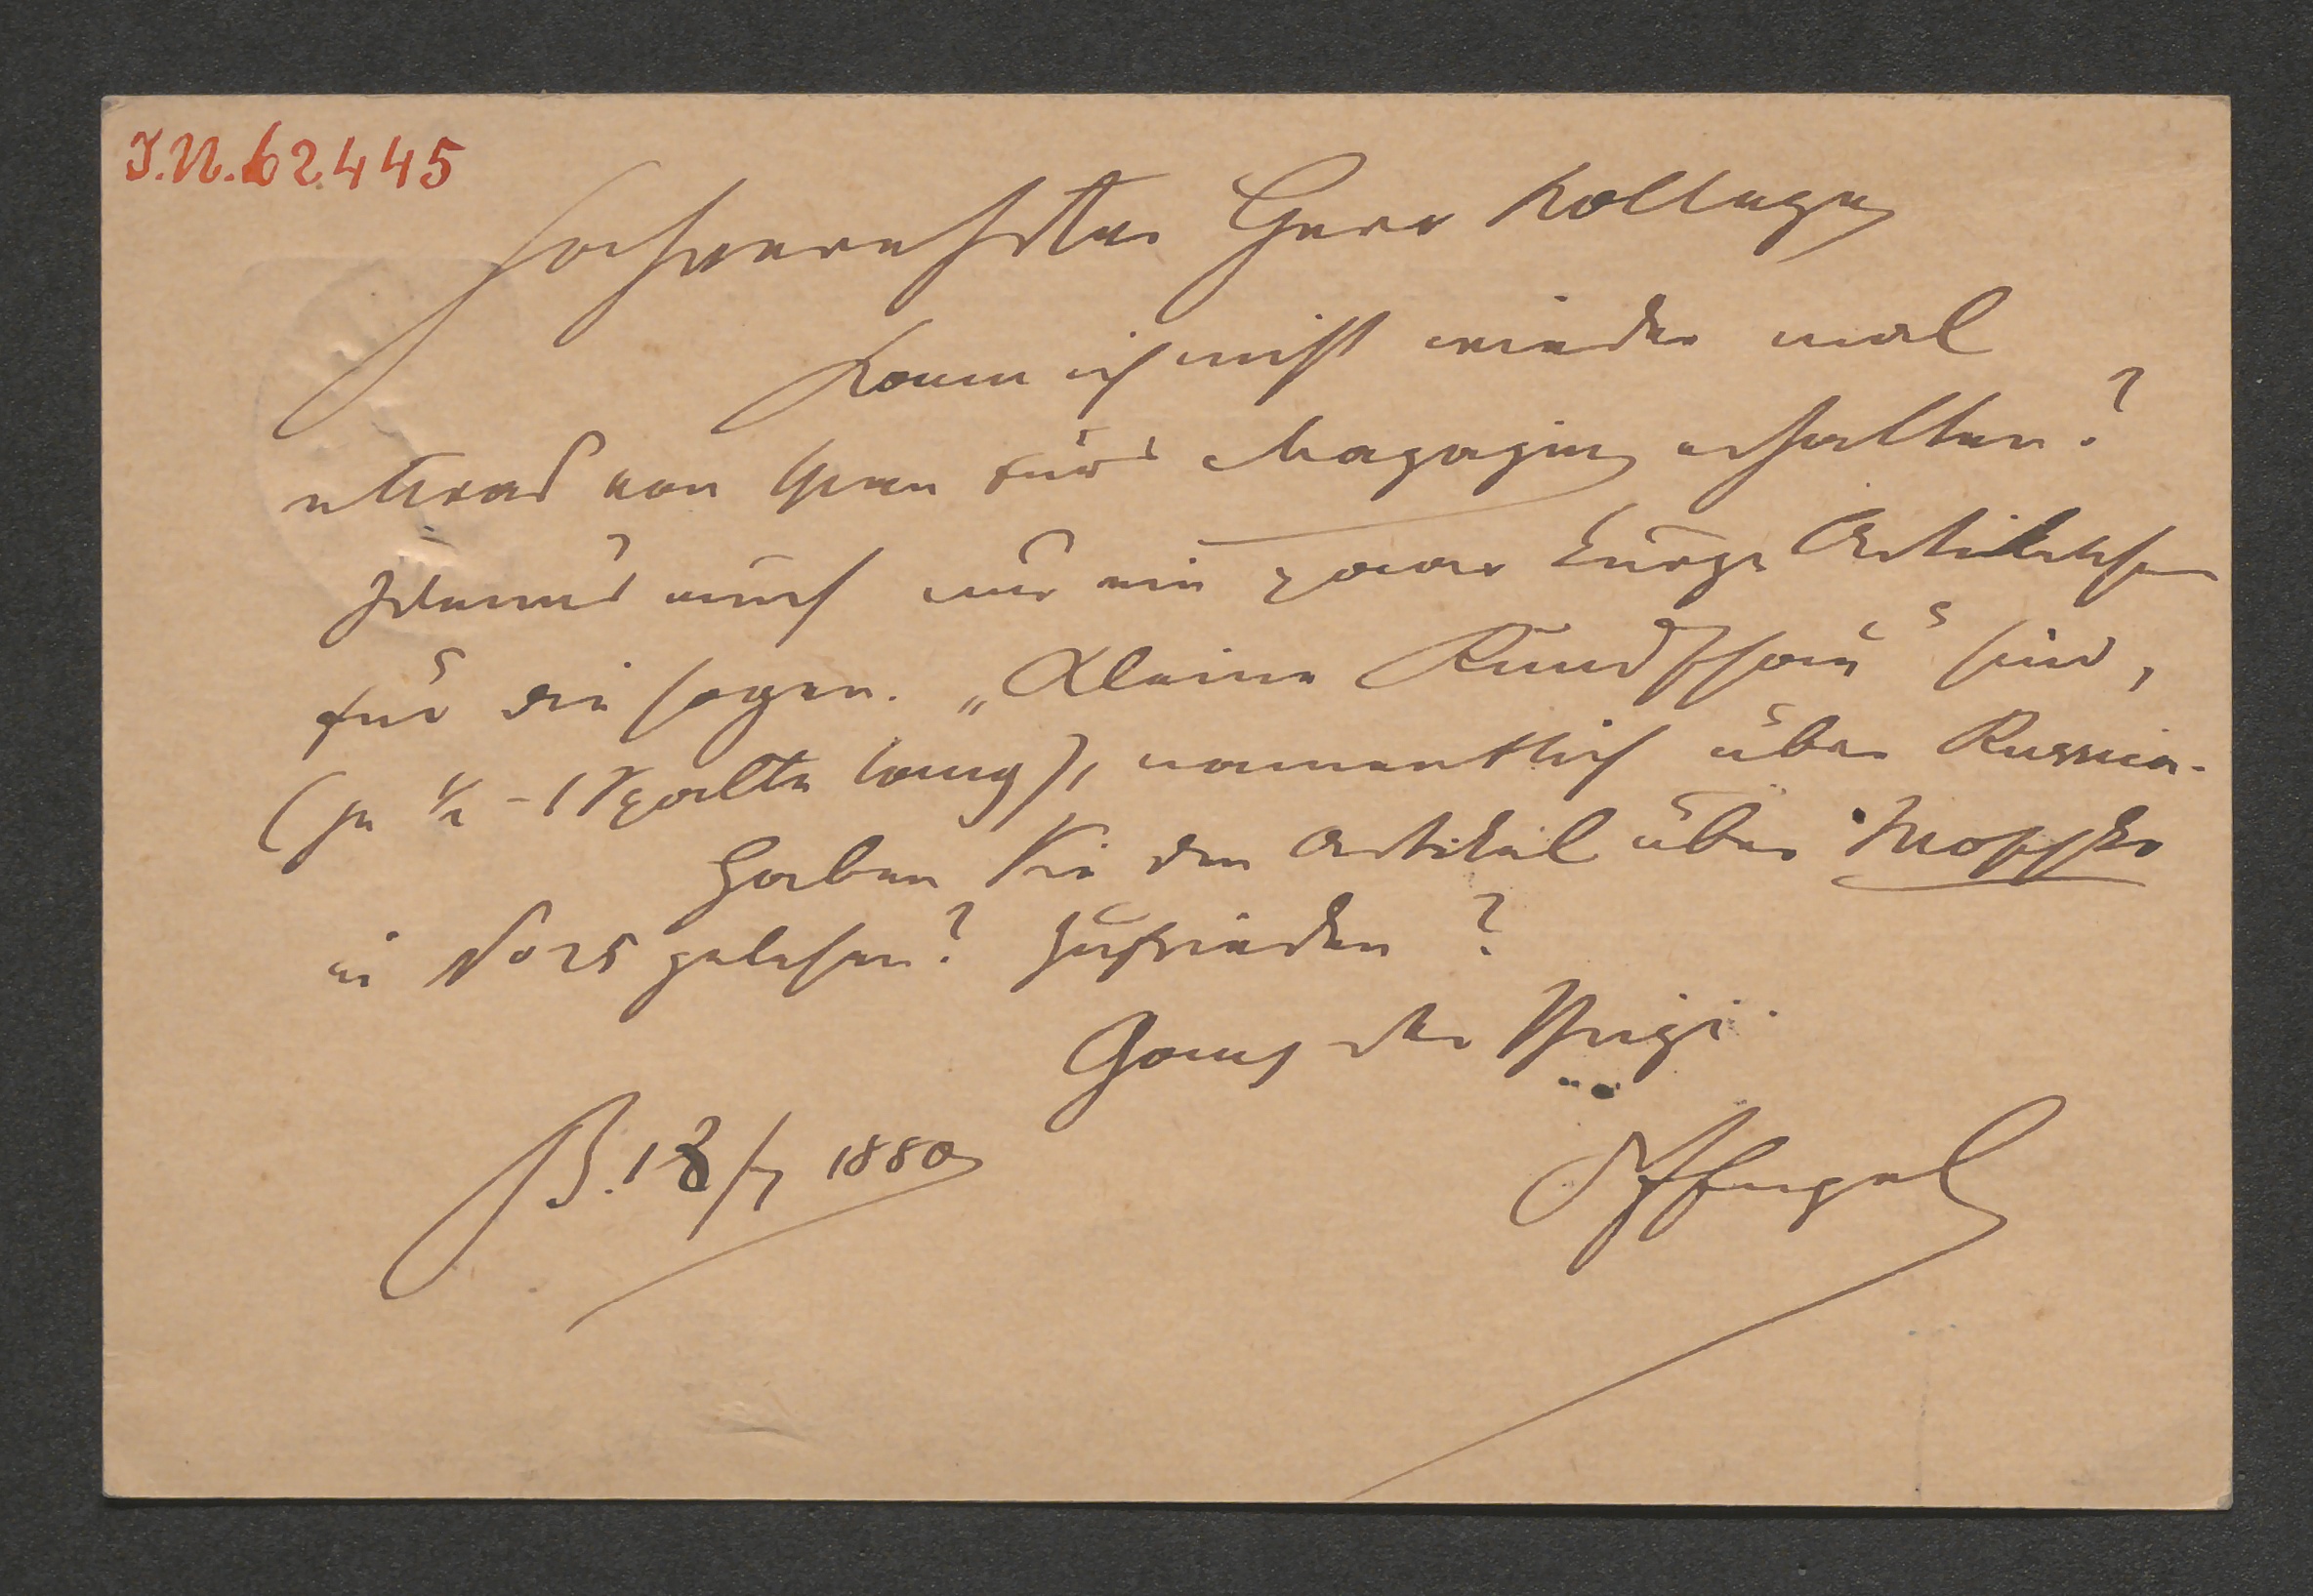 I.N. 62.445
Hochverehrter Herr Kollege
Kann ich nicht wieder mal
etwas von Ihnen fürs Magazin erhalten?
Wenns auch nur ein paar kurze Artikelchen
für die sogen. „Kleine Rundschau" sind,
(je ½ - 1 Spalte lang), namentlich über Russica.
Haben Sie den Artikel über
in No 25 gelesen? Zufrieden?
Ganz der Ihrige
B. 18/7 1880
Engel